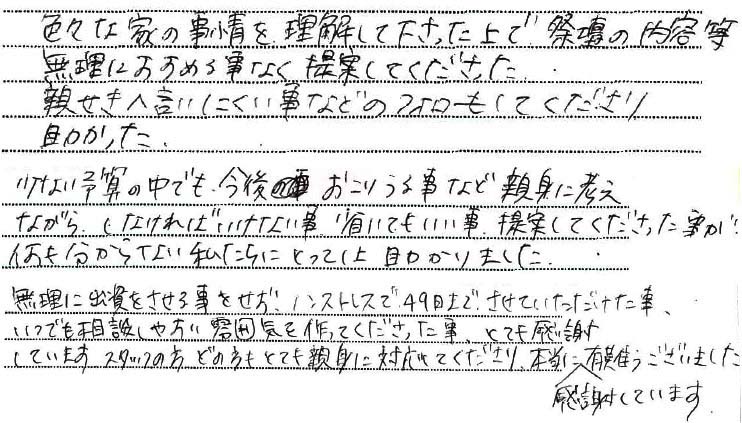 色々な家の事情を理解して下さった上で祭壇の内容等
無理におすすめる事なく提案してくださった。
親せきへ言いにくい事などのフォローもしてくださり
助かった。
少ない予算の中でも、今後 おこりうる事など親身に考え
ながら、しなければいけない事 省いてもいい事、提案してくださった事が
何も分からない私たちにとっては助かりました。
無理に出資をさせる事をせず、ノンストレスで49日まで、させていただけた事、
いつでも相談しやすい雰囲気を作ってくださった事、とても感謝
しています スタッフの方 どの方もとても親身に対応してくださり、本当に有難うございました
感謝しています。